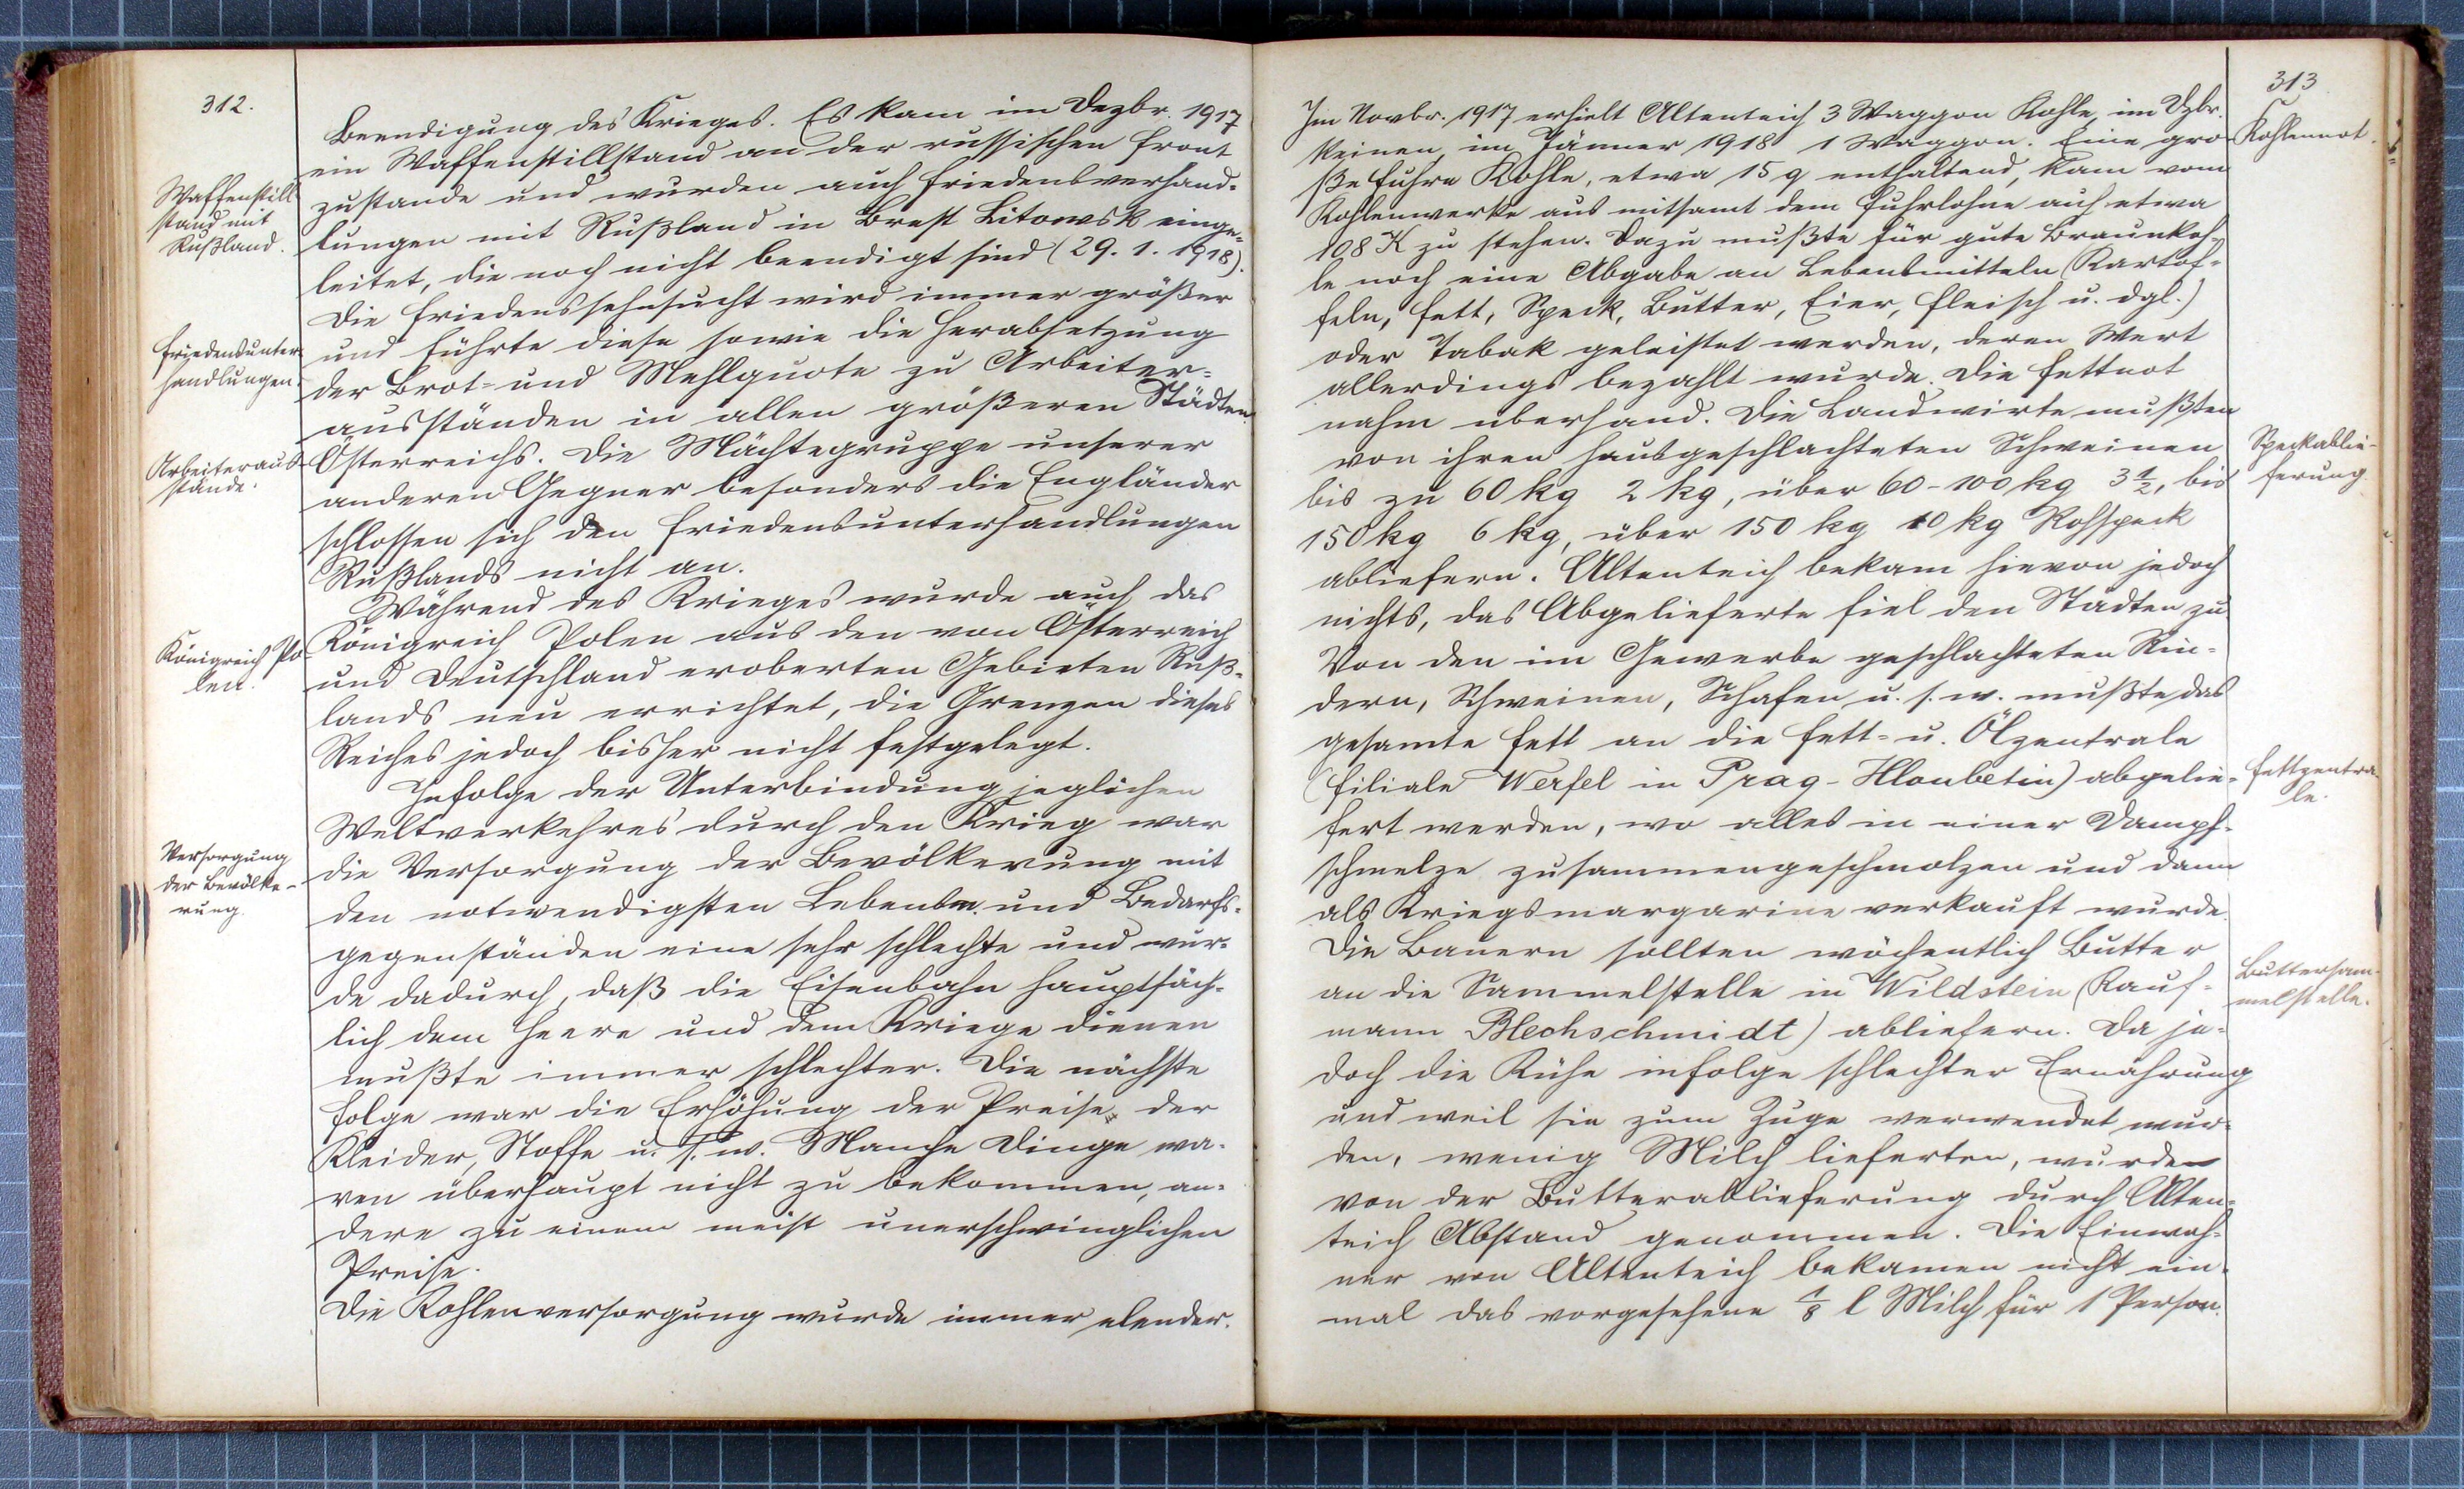 312.
Beendigung des Krieges. Es kam im Dezbr. 1917
ein Waffenstillstand an der russischen Front
Waffenstill
stand mit
Rußland.
zustande und wurden auch Friedensverhand-
lungen mit Rußland in Brest Litowsk einge-
leitet, die noch nicht beendigt sind (29. 1. 1918).
Die Friedenssehnsucht wird immer größer
Friedensunter-
handlungen.
und führte diese sowie die Herabsetzung
der Brot- und Mehlquote zu Arbeiter-
ausständen in allen größeren Städten
Arbeiteraus
stände.
Österreichs. Die Mächtegruppe unserer
anderen Gegner besonders die Engländer
schlossen sich den Friedensunterhandlungen
Rußlands nicht an.
Während des Krieges wurde auch das
Königreich Po
len.
Königreich Polen aus den von Österreich
und Deutschland eroberten Gebieten Ruß-
lands neu errichtet, die Grenzen dieses
Reiches jedoch bisher nicht festgelegt.
Infolge der Unterbindung jeglichen
Weltverkehres durch den Krieg war
Versorgung
der Bevölke-
rung.
die Versorgung der Bevölkerung mit
den notwendigsten Lebensm. und Bedarfs-
gegenständen eine sehr schlechte und wur-
de dadurch, daß die Eisenbahn hauptsäch-
lich dem Heere und dem Kriege dienen
mußte immer schlechter. Die nächste
Folge war die Erhöhung der Preise der
Kleider, Stoffe u. s. w. Manche Dinge wa-
ren überhaupt nicht zu bekommen, an-
dere zu einem meist unerschwinglichen
Preise.
Die Kohlenversorgung wurde immer elender.
313
Im Novbr. 1917 erhielt Altenteich 3 Waggon Kohle, im Dzbr.
Kohlennot.
keinen, im Jänner 1918 1 Waggon. Eine gro
ße Fuhre Kohle, etwa 15 q enthaltend, kam vom
Kohlenwerke aus mitsamt dem Fuhrlohne auf etwa
108 K zu stehen. Dazu mußte für gute Braunkoh-
le noch eine Abgabe an Lebensmitteln (Kartof-
feln, Fett, Speck, Butter, Eier, Fleisch u. dgl.)
oder Tabak geleistet werden, deren Wert
allerdings bezahlt wurde. Die Fettnot
nahm überhand. Die Landwirte mußten
von ihren hausgeschlachteten Schweinen
Speckablie-
ferung.
bis zu 60 kg 2 kg, über 60-100 kg 3 1/2, bis
150 kg 6 kg, über 150 kg 10 kg Rohspeck
abliefern. Altenteich bekam hievon jedoch
nichts, das Abgelieferte fiel den Städten zu.
Von den im Gewerbe geschlachteten Rin-
dern, Schweinen, Schafen u. s. w. mußte das
gesamte Fett an die Fett- u. Ölzentrale
(Filiale Werfel in Prag-Hloubetin) abgelie-
Fettzentra-
le.
fert werden, wo alles in einer Dampf-
schmelze zusammengeschmolzen und dann
als Kriegsmargarine verkauft wurde.
Die Bauern sollten wöchentlich Butter
Buttersam-
melstelle.
an die Sammelstelle in Wildstein (Kauf-
mann Blechschmidt) abliefern. Da je-
doch die Kühe infolge schlechter Ernährung
und weil sie zum Zuge verwendet wur-
den, wenig Milch lieferten, wurden
von der Butterablieferung durch Alten-
teich Abstand genommen. Die Einwoh-
ner von Altenteich bekamen nicht ein-
mal das vorgesehene 1/8 l Milch für 1 Person.